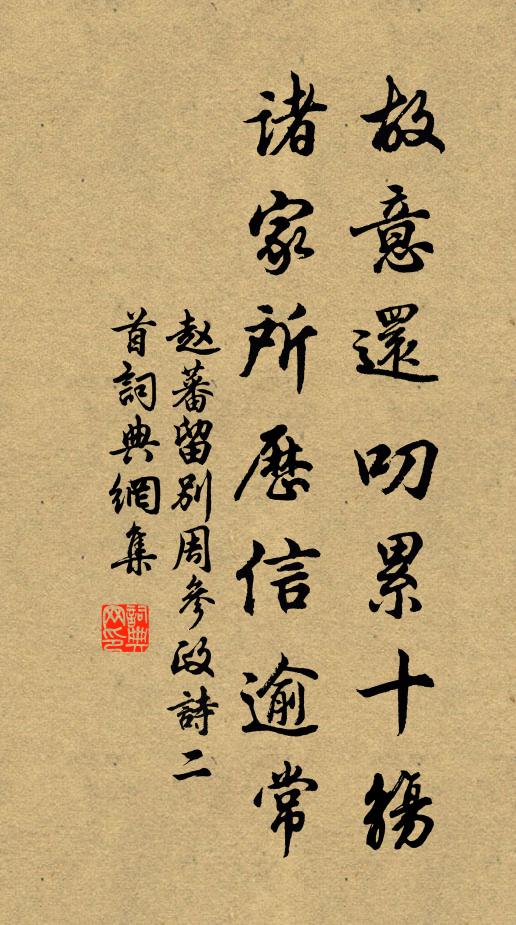 故意還叨累十觴
諸家所歷信逾常
赵蕃留别周參政詩二
首詞典網集
詞典网印